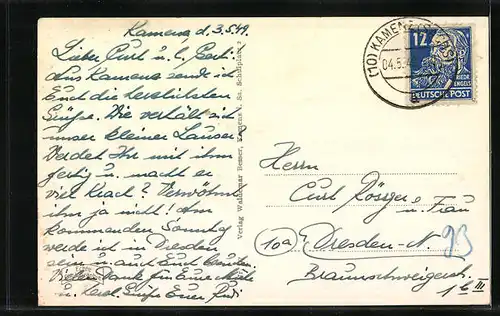 Kamenz d. 3.5.49.
Lieber Curt u. l. Gert!
Aus Kamenz sende ich
Euch die herzlichsten
Grüsse. Wie verhält sich
unser kleiner Lauser?
Werdet Ihr mit ihm
fertig u. macht er
viel Krach? Verwöhnt
ihn ja nicht! Am
kommenden Sonntag
werde ich in Dresden
sein u. auch Euch
Vielen Dank für Eure Mühe
u. herzl. Grüsse Euer Rudi
Verlag Waldemar Besser, Kamenz i. Sa.
(10) KAMENZ
04.5.4
a
12
FRIEDR
ENGELS
DEUTSCHE POST
Herrn
Curt Rösger
u. Frau
10a
Dresden-N. 23
Braunschweigerstr.
16 III